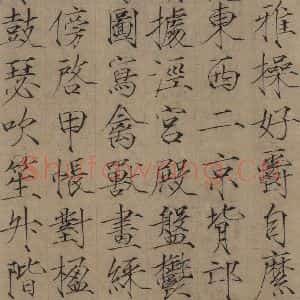 雅操好爵自縻
東西二京背邙
據涇宮殿盤鬱
圖寫禽獸畫綵
傍啓甲帳對楹
鼓瑟吹笙升階